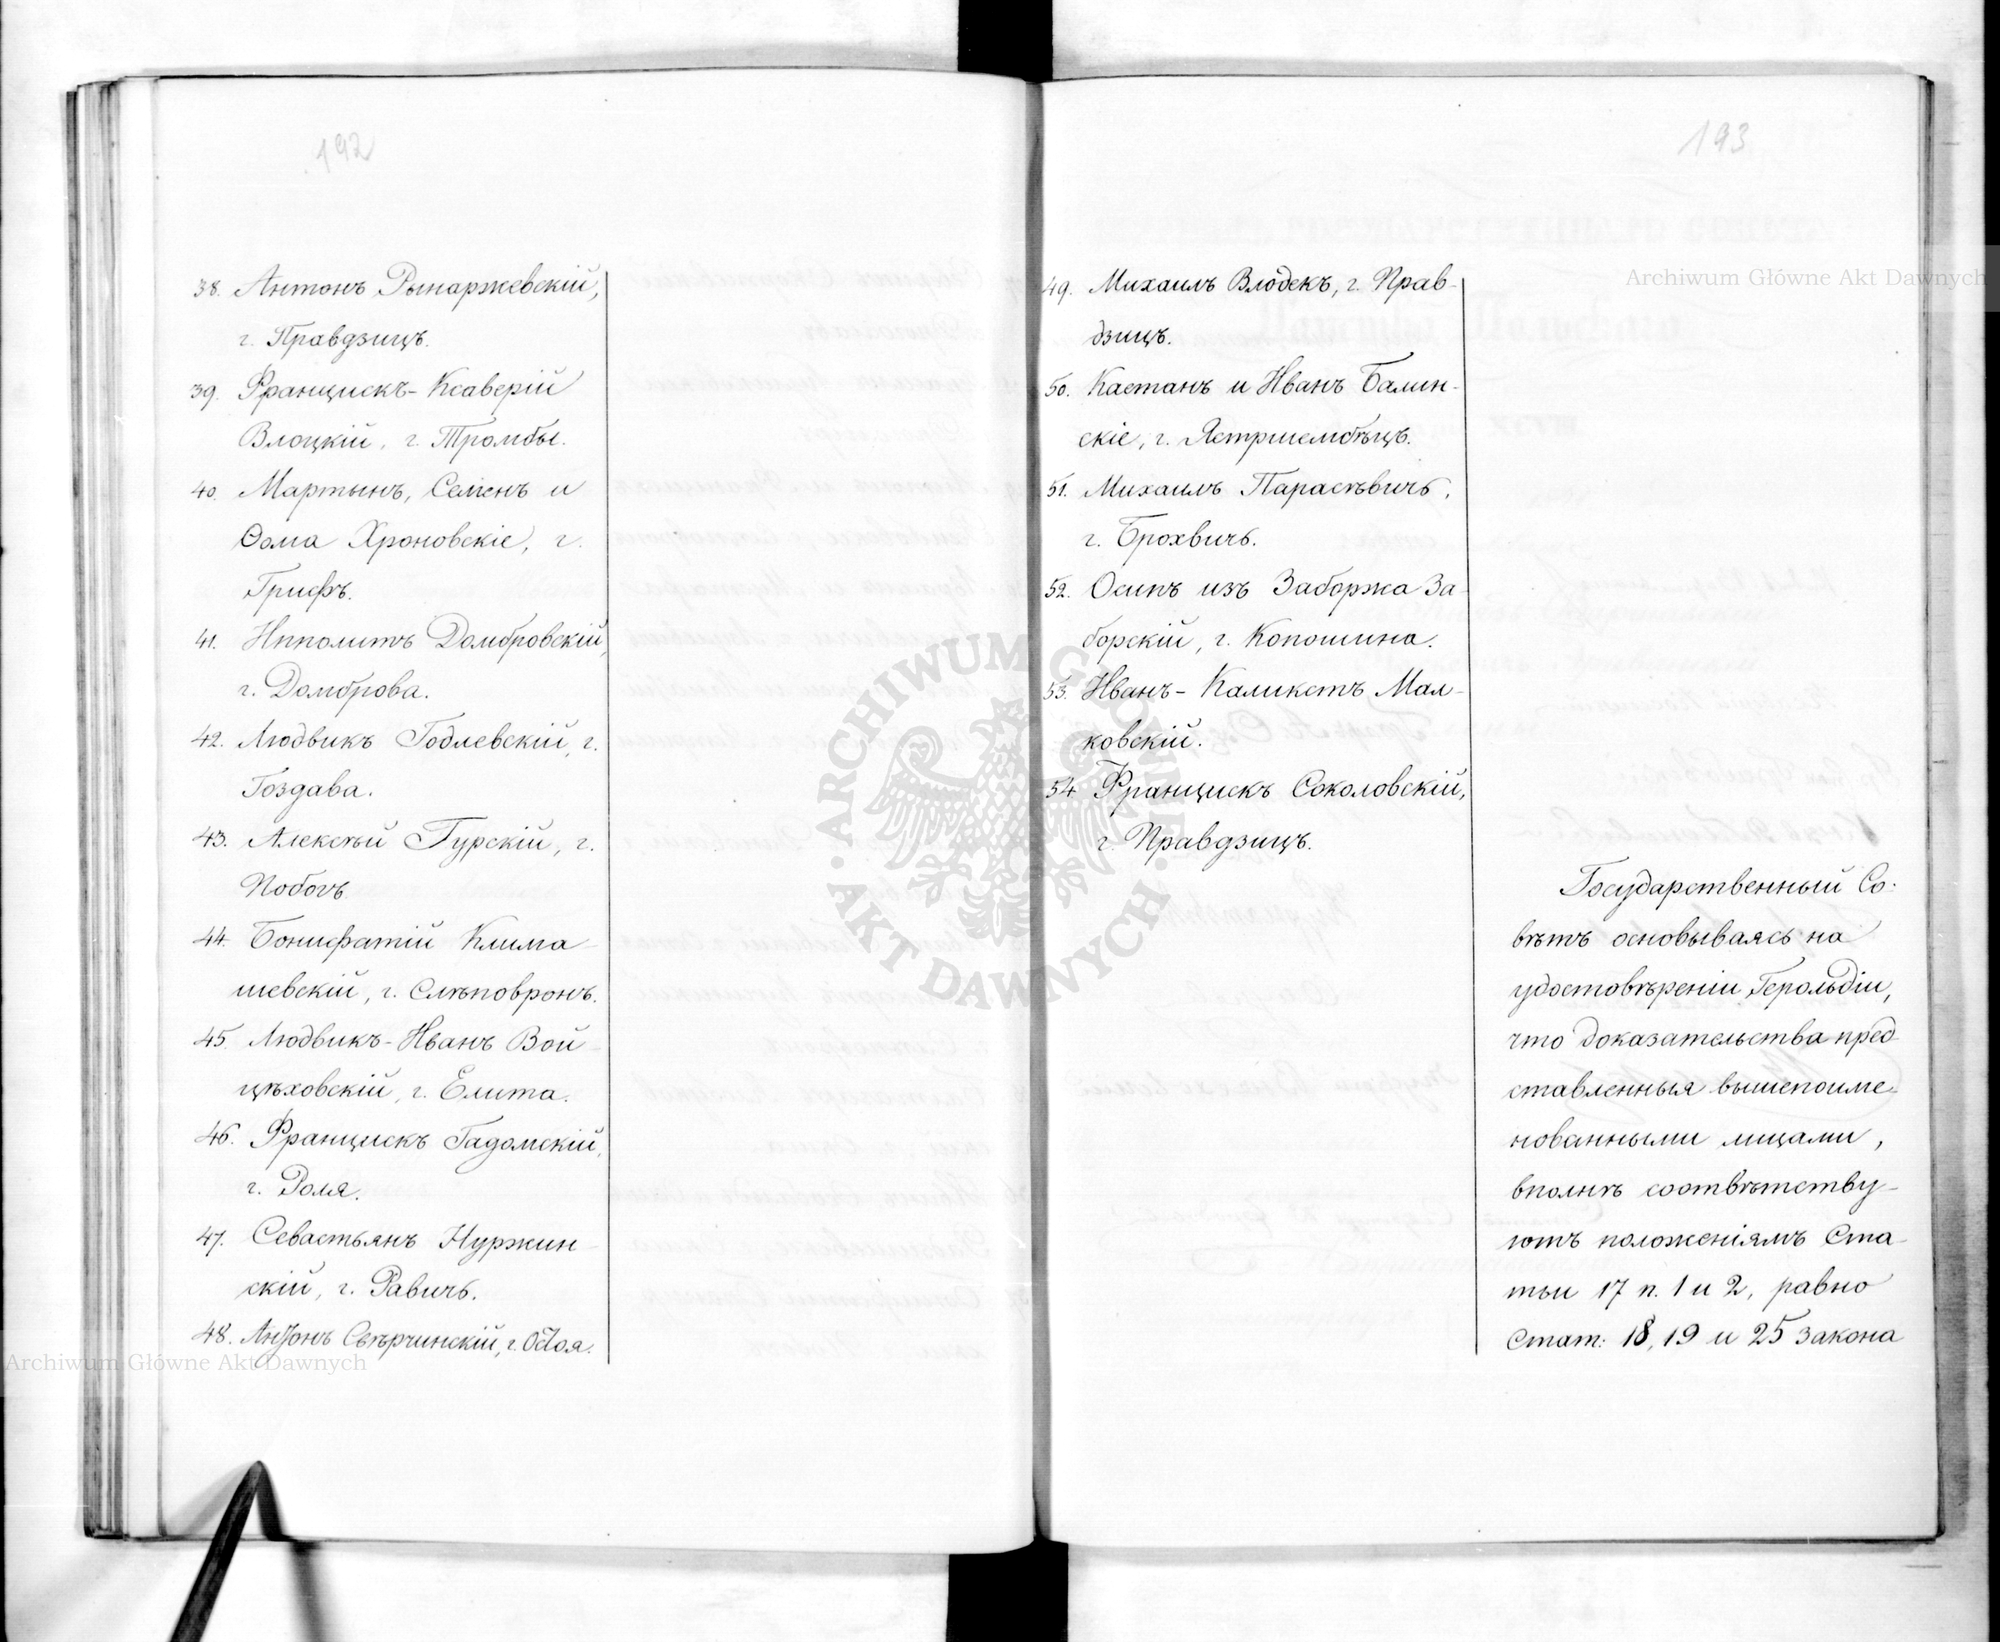 192
38. Антонъ Рынаржевскій,
г. Правдзицъ.
39. Францискъ-Ксаверій
Влоцкій, г. Тромбы.
40. Мартынъ, Семенъ и
Ѳома Хроновскіе, г.
Грифъ.
41. Ипполитъ Домбровскій,
г. Домброва.
42. Людвикъ Годлевскій, г.
Гоздава.
43. Алексѣй Гурскій, г.
Побогъ
44. Бонифатій Клима-
шевскій, г. Слѣповронъ.
45. Людвикъ-Иванъ Вой-
цѣховскій, г. Елита.
46. Францискъ Гадомскій,
г. Роля.
47. Севастьянъ Нуржин-
скій, г. Равичъ.
48. Антонъ Свѣрчинскій, г. Остоя.
193
49. Михаилъ Влодекъ, г. Прав-
дзицъ.
50. Каетанъ и Иванъ Балин-
скіе, г. Ястршембѣцъ.
51. Михаилъ Парасѣвичъ,
г. Брохвичъ.
52. Осипъ изъ Заборжа За-
борскій, г. Копошина.
53. Иванъ-Каликстъ Мал-
ковскій.
54 Францискъ Соколовскій,
г. Правдзицъ.
Государственный Со-
вѣтъ основываясь на
удостовѣреніи Герольдіи,
что доказательства пред-
ставленныя вышепоиме-
нованными лицами,
вполнѣ соотвѣтству-
ютъ положеніямъ Ста-
тьи 17 п. 1 и 2, равно
Стат: 18, 19 и 25 закона
Archiwum Główne Akt Dawnych
Archiwum Główne Akt Dawnych
ARCHIWUM GŁÓWNE · AKT DAWNYCH ·